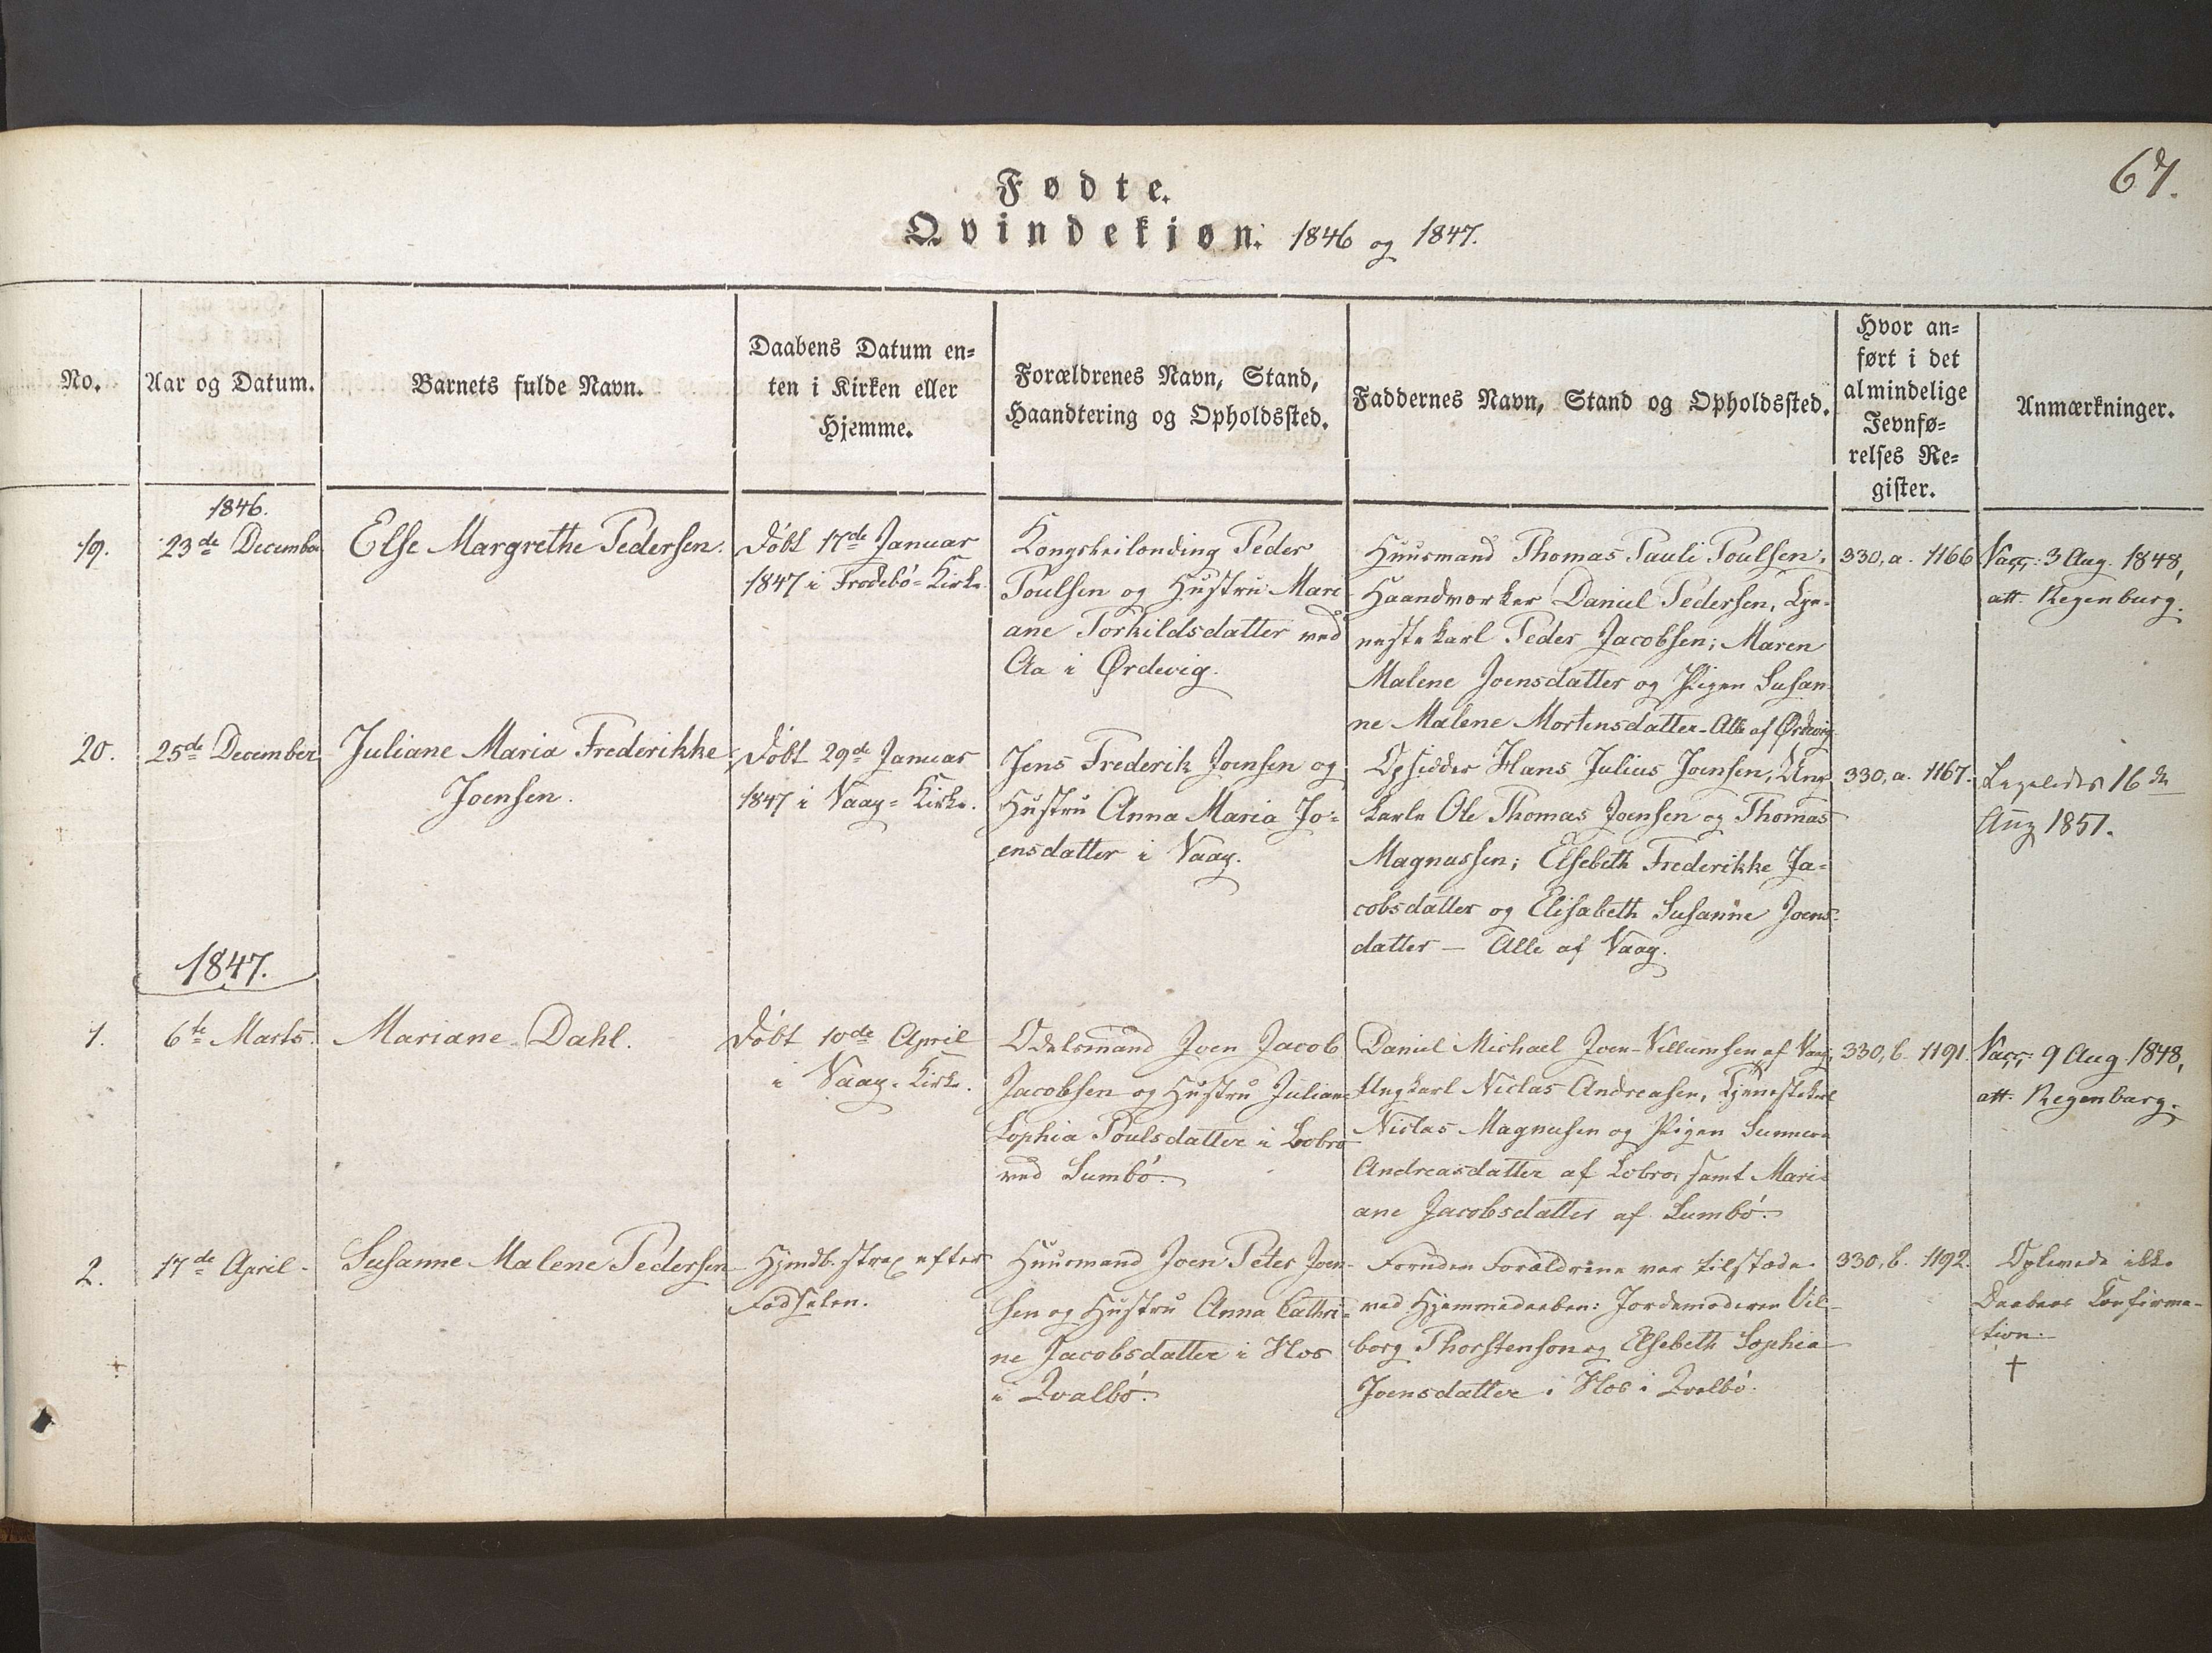 67.
Fødte.
Qvindekjøn. 1846 og 1847.
No.
Aar og Datum.
Barnets fulde Navn.
Daabens Datum en=
ten i Kirken eller
Hjemme.
Forældrenes Navn, Stand,
Haandtering og Opholdssted.
Faddernes Navn, Stand og Opholdssted.
Hvor an=
ført i det
almindelige
Jevnfø=
relses Re=
gister.
Anmærkninger.
1846.
19.
23de December
Else Margrethe Pedersen.
Døbt 17de Januar
1847 i Frodebö=Kirke
Peder
Poulsen og Hustru Mari
ane Torkildsdatter ved
Aa i Ørdevig.
Huusmand Thomas Pauli Poulsen,
Haandværker Daniel Pedersen, Tje-
nestekarl Peder Jacobsen; Maren
Malene Joensdatter og Pigen Susan
ne Malene Mortensdatter - Alle af Ørdevig
330, a. 1166
Vacc: 3 Aug. 1848,
att. Regenburg.
20.
25de December
Juliane Maria Frederikke
Joensen.
Døbt 29de Januar
1847 i Vaag=Kirke.
Jens Frederik Joensen og
Hustru Anna Maria Jo=
ensdatter i Vaag.
Opsidder Hans Julius Joensen, Ung
karle Ole Thomas Joensen og Thomas
Magnussen; Elsebeth Frederikke Ja=
cobsdatter og Elisabeth Susanne Joens
datter - Alle af Vaag.
330, a. 1167.
Ligeledes 16de
Aug 1851.
1847.
1.
6te Marts.
Mariane Dahl.
Døbt 10de April
i Vaag=Kirke.
Odelsmand Joen Jacob
Jacobsen og Hustru Juliane
Sophia Poulsdatter i Lobro
ved Sumbö.
Daniel Michael Joen-Villumsen af Vaag,
Ungkarl Niclas Andreasen, Tjenestekarl
Niclas Magnusen og Pigen Sunneva
Andreasdatter af Lobro, samt Mari=
ane Jacobsdatter af Sumbö.
330, b. 1191.
Vacc: 9 Aug. 1848,
att. Regenburg.
2.
17de April.
Susanne Malene Pedersen
Hjmdb. strax efter
Fødselen.
Huusmand Joen Peter Joen-
sen og Hustru Anna Cathri-
ne Jacobsdatter i Hos
i Qvalbö.
Foruden Forældrene var tilstæde
ved Hjemmedaaben: Jordemoderen Vil-
borg Thorstenson og Elsebeth Sophia
Joensdatter i Hos i Qvalbö.
330, b. 1192.
Oplevede ikke
Daabens Confirma-
tion.
†